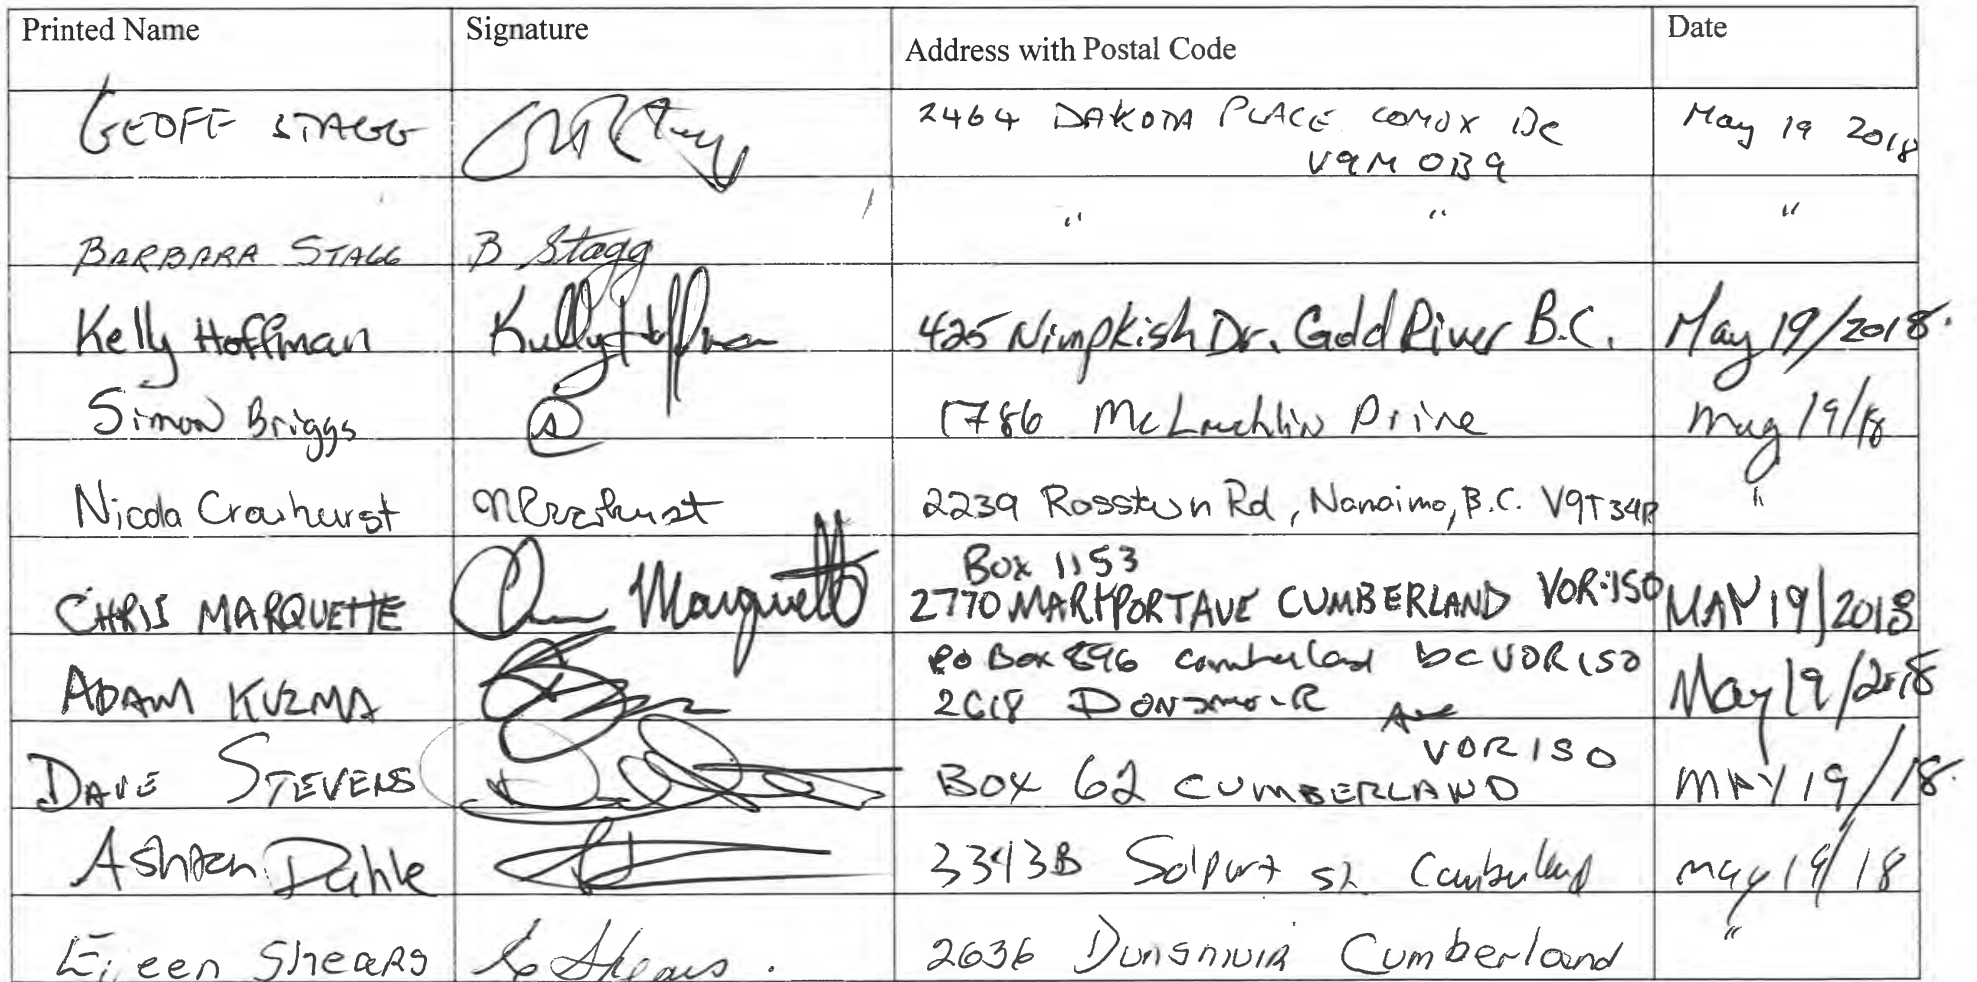 Printed Name Signature Address with Postal Code Date
GEOFF STAGG 2464 DAKOTA PLACE COMOX BC May 19 2018
V9M 0B9
BARBARA STAGG B Stagg " " "
Kelly Hoffman Kelly Hoffman 425 Nimpkish Dr. Gold River B.C. May 19/2018.
Simon Briggs 1786 McLauchlin Drive May 19/18
Nicola Crawhurst 2239 Rosstown Rd, Nanaimo, B.C. V9T "
Box 1153
CHRIS MARQUETTE Marquette 2770 CUMBERLAND V0R·1S0 MAY 19/2018
PO Box 896 Cumberland bc V0R 1S0
ADAM KUZMA 2618 Dunsmuir Ave May 19/2018
V0R 1S0
DAVE STEVENS BOX 62 CUMBERLAND MAY 19/18.
Dahle 3343B Solport St. Cumberland may 19/18
Eileen Shears Shears. 2636 Dunsmuir Cumberland "